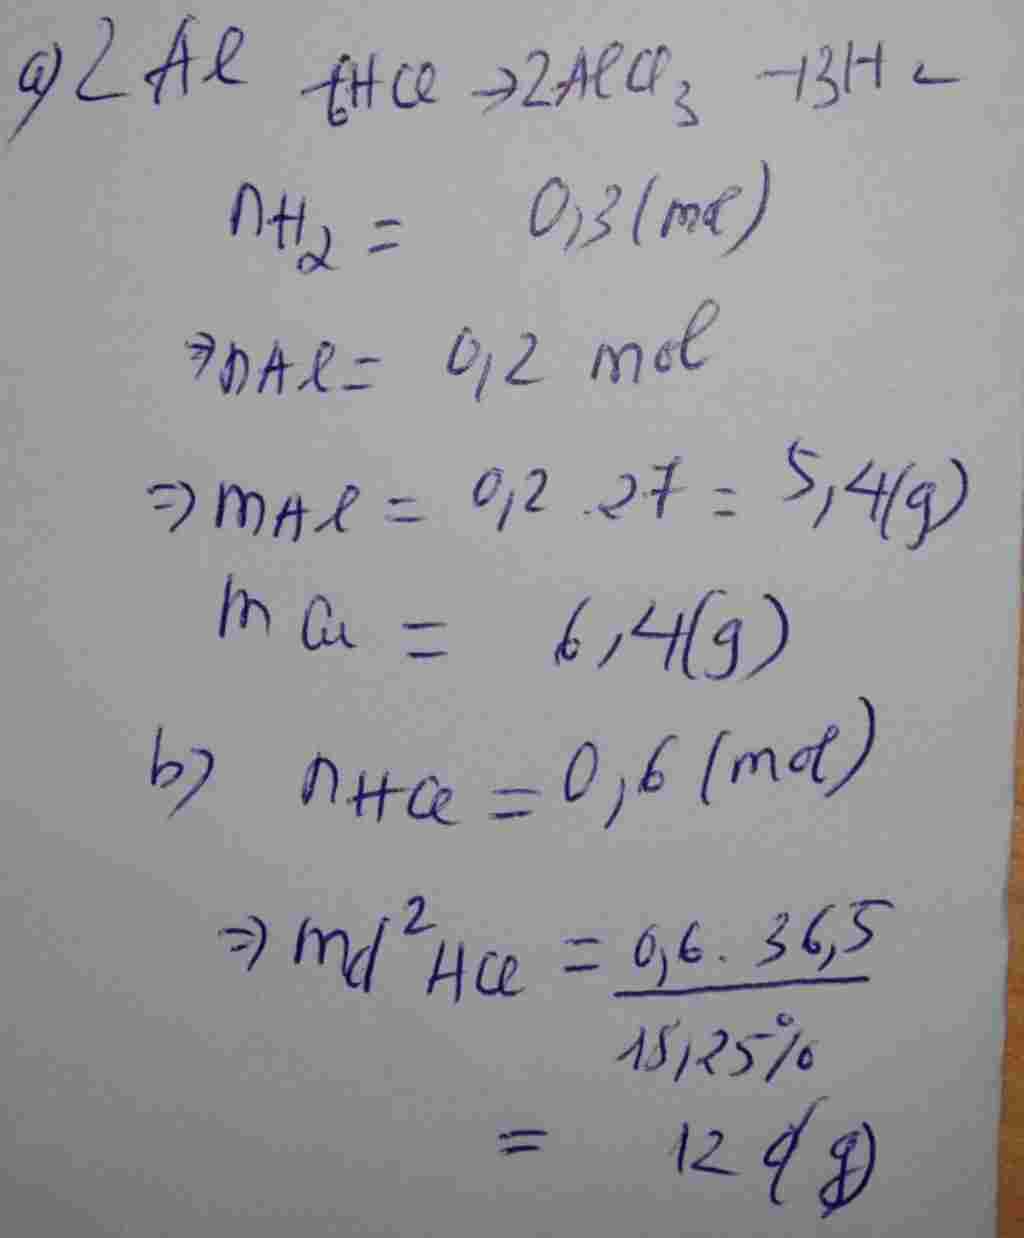 a) 2Al + 6HCl → 2AlCl3 + 3H2
nH2 = 0,3 (mol)
⇒ nAl = 0,2 mol
⇒ mAl = 0,2 . 27 = 5,4(g)
mCu = 6,4(g)
b) nHCl = 0,6 (mol)
⇒ md2 HCl = 0,6. 36,5
18,25%
= 120 (g)